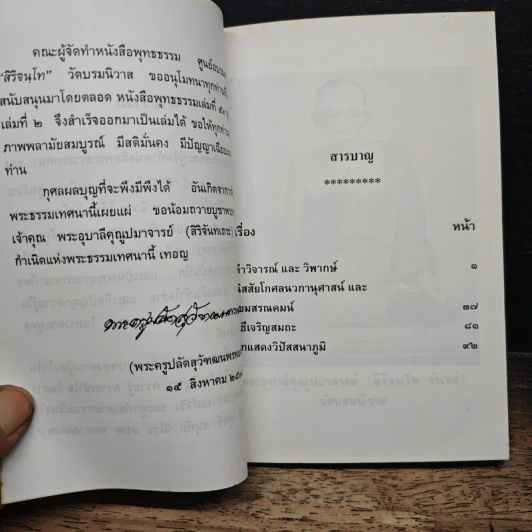 คณะผู้จัดทำหนังสือพุทธธรรม ศูนย์
"สิริจนฺโท" วัดบรมนิวาส ขออนุโมทนาทุกท่าน
สนับสนุนมาโดยตลอด หนังสือพุทธธรรมเล่มที่ ๕๑
เล่มที่ ๒ จึงสำเร็จออกมาเป็นเล่มได้ ขอให้ทุกท่าน
ภาพพลามัยสมบูรณ์ มีสติมั่นคง มีปัญญา
ท่าน
กุศลผลบุญที่จะพึงมีพึงได้ อันเกิดจาก
พระธรรมเทศนานี้เผยแผ่ ขอน้อมถวายบูชา
เจ้าคุณ พระอุบาลีคุณูปมาจารย์ (สิริจันทเถระ)
กำเนิดแห่งพระธรรมเทศนานี้ เทอญ
(พระครูปลัดสุวัฒนพรหม
๑๕ สิงหาคม
สารบาญ
*********
เรื่อง หน้า
คำวิจารณ์ และ วิพากษ์ ๑
นิสสัยโกศลนวกานุศาสน์ และ
ยมสรณคมน์ ๓๗
ธีเจริญสมถะ ๘๑
กแสดงวิปัสสนาภูมิ ๙๒